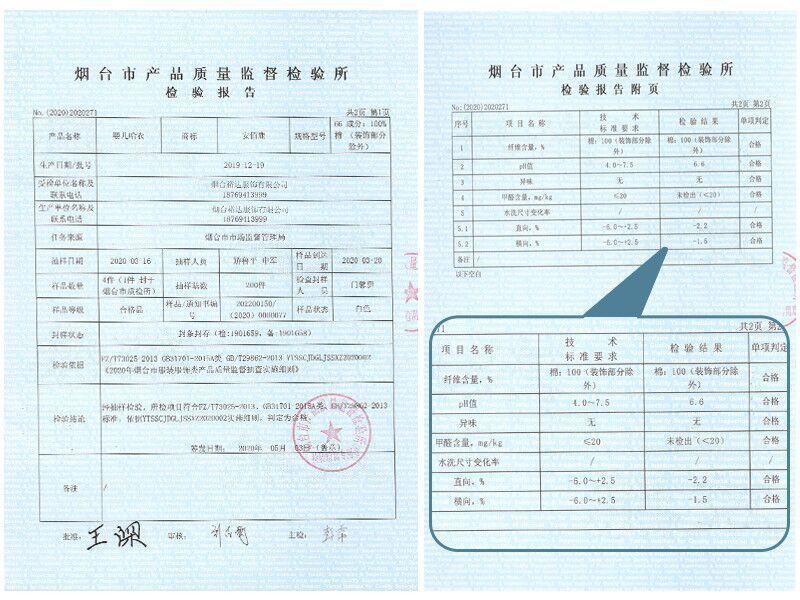 烟台市产品质量监督检验所
检验报告
No.(2020)2020271 共2页 第1页
产品名称 婴儿哈衣 商标 安佰康 规格型号 66 成分：100%棉（装饰部分除外）
生产日期/批号 2019-12-19
受检单位名称及联系电话 烟台裕达服饰有限公司 18769413999
生产单位名称及联系电话 烟台裕达服饰有限公司 18769413999
任务来源 烟台市市场监督管理局
抽样日期 2020-03-16 抽样人员 平 中军 样品到达日期 2020-03-20
样品数量 4件（1件 封于烟台市质检所） 抽样基数 200件 检查封样人员
样品等级 合格品 样品/通知书编号 202200150/(2020) 0000077 样品状态 白色
封样状态 封条封存（检:1901659，备:1901658）
检验依据 FZ/T73025-2013 GB31701-2015A类 GB/T29862-2013 YTSSCJDGLJSSXZ2020002
《2020年烟台市服装服饰类产品质量监督抽查实施细则》
检验结论 经抽样检验，所检项目符合FZ/T73025-2013、GB31701-2015A类、GB/T29862-2013
标准，依据YTSSCJDGLJSSXZ2020002实施细则，判定为合格。
签发日期： 2020年 05月 03日
备注 /
批准： 审核： 主检：
烟台市产品质量监督检验所
检验报告附页
No:(2020)2020271 共2页 第2页
序号 项目名称 技术标准要求 检验结果 单项判定
1 纤维含量，% 棉：100（装饰部分除外） 棉：100（装饰部分除外） 合格
2 pH值 4.0～7.5 6.6 合格
3 异味 无 无 合格
4 甲醛含量，mg/kg ≤20 未检出（<20） 合格
5 水洗尺寸变化率 / / /
5.1 直向，% -6.0～+2.5 -2.2 合格
5.2 横向，% -6.0～+2.5 -1.5 合格
备注 /
以下空白
共2页 第2
项目名称 技术标准要求 检验结果 单项判定
纤维含量，% 棉：100（装饰部分除外） 棉：100（装饰部分除外） 合格
pH值 4.0～7.5 6.6 合格
异味 无 无 合格
甲醛含量，mg/kg ≤20 未检出（<20） 合格
水洗尺寸变化率 / / /
直向，% -6.0～+2.5 -2.2 合格
横向，% -6.0～+2.5 -1.5 合格